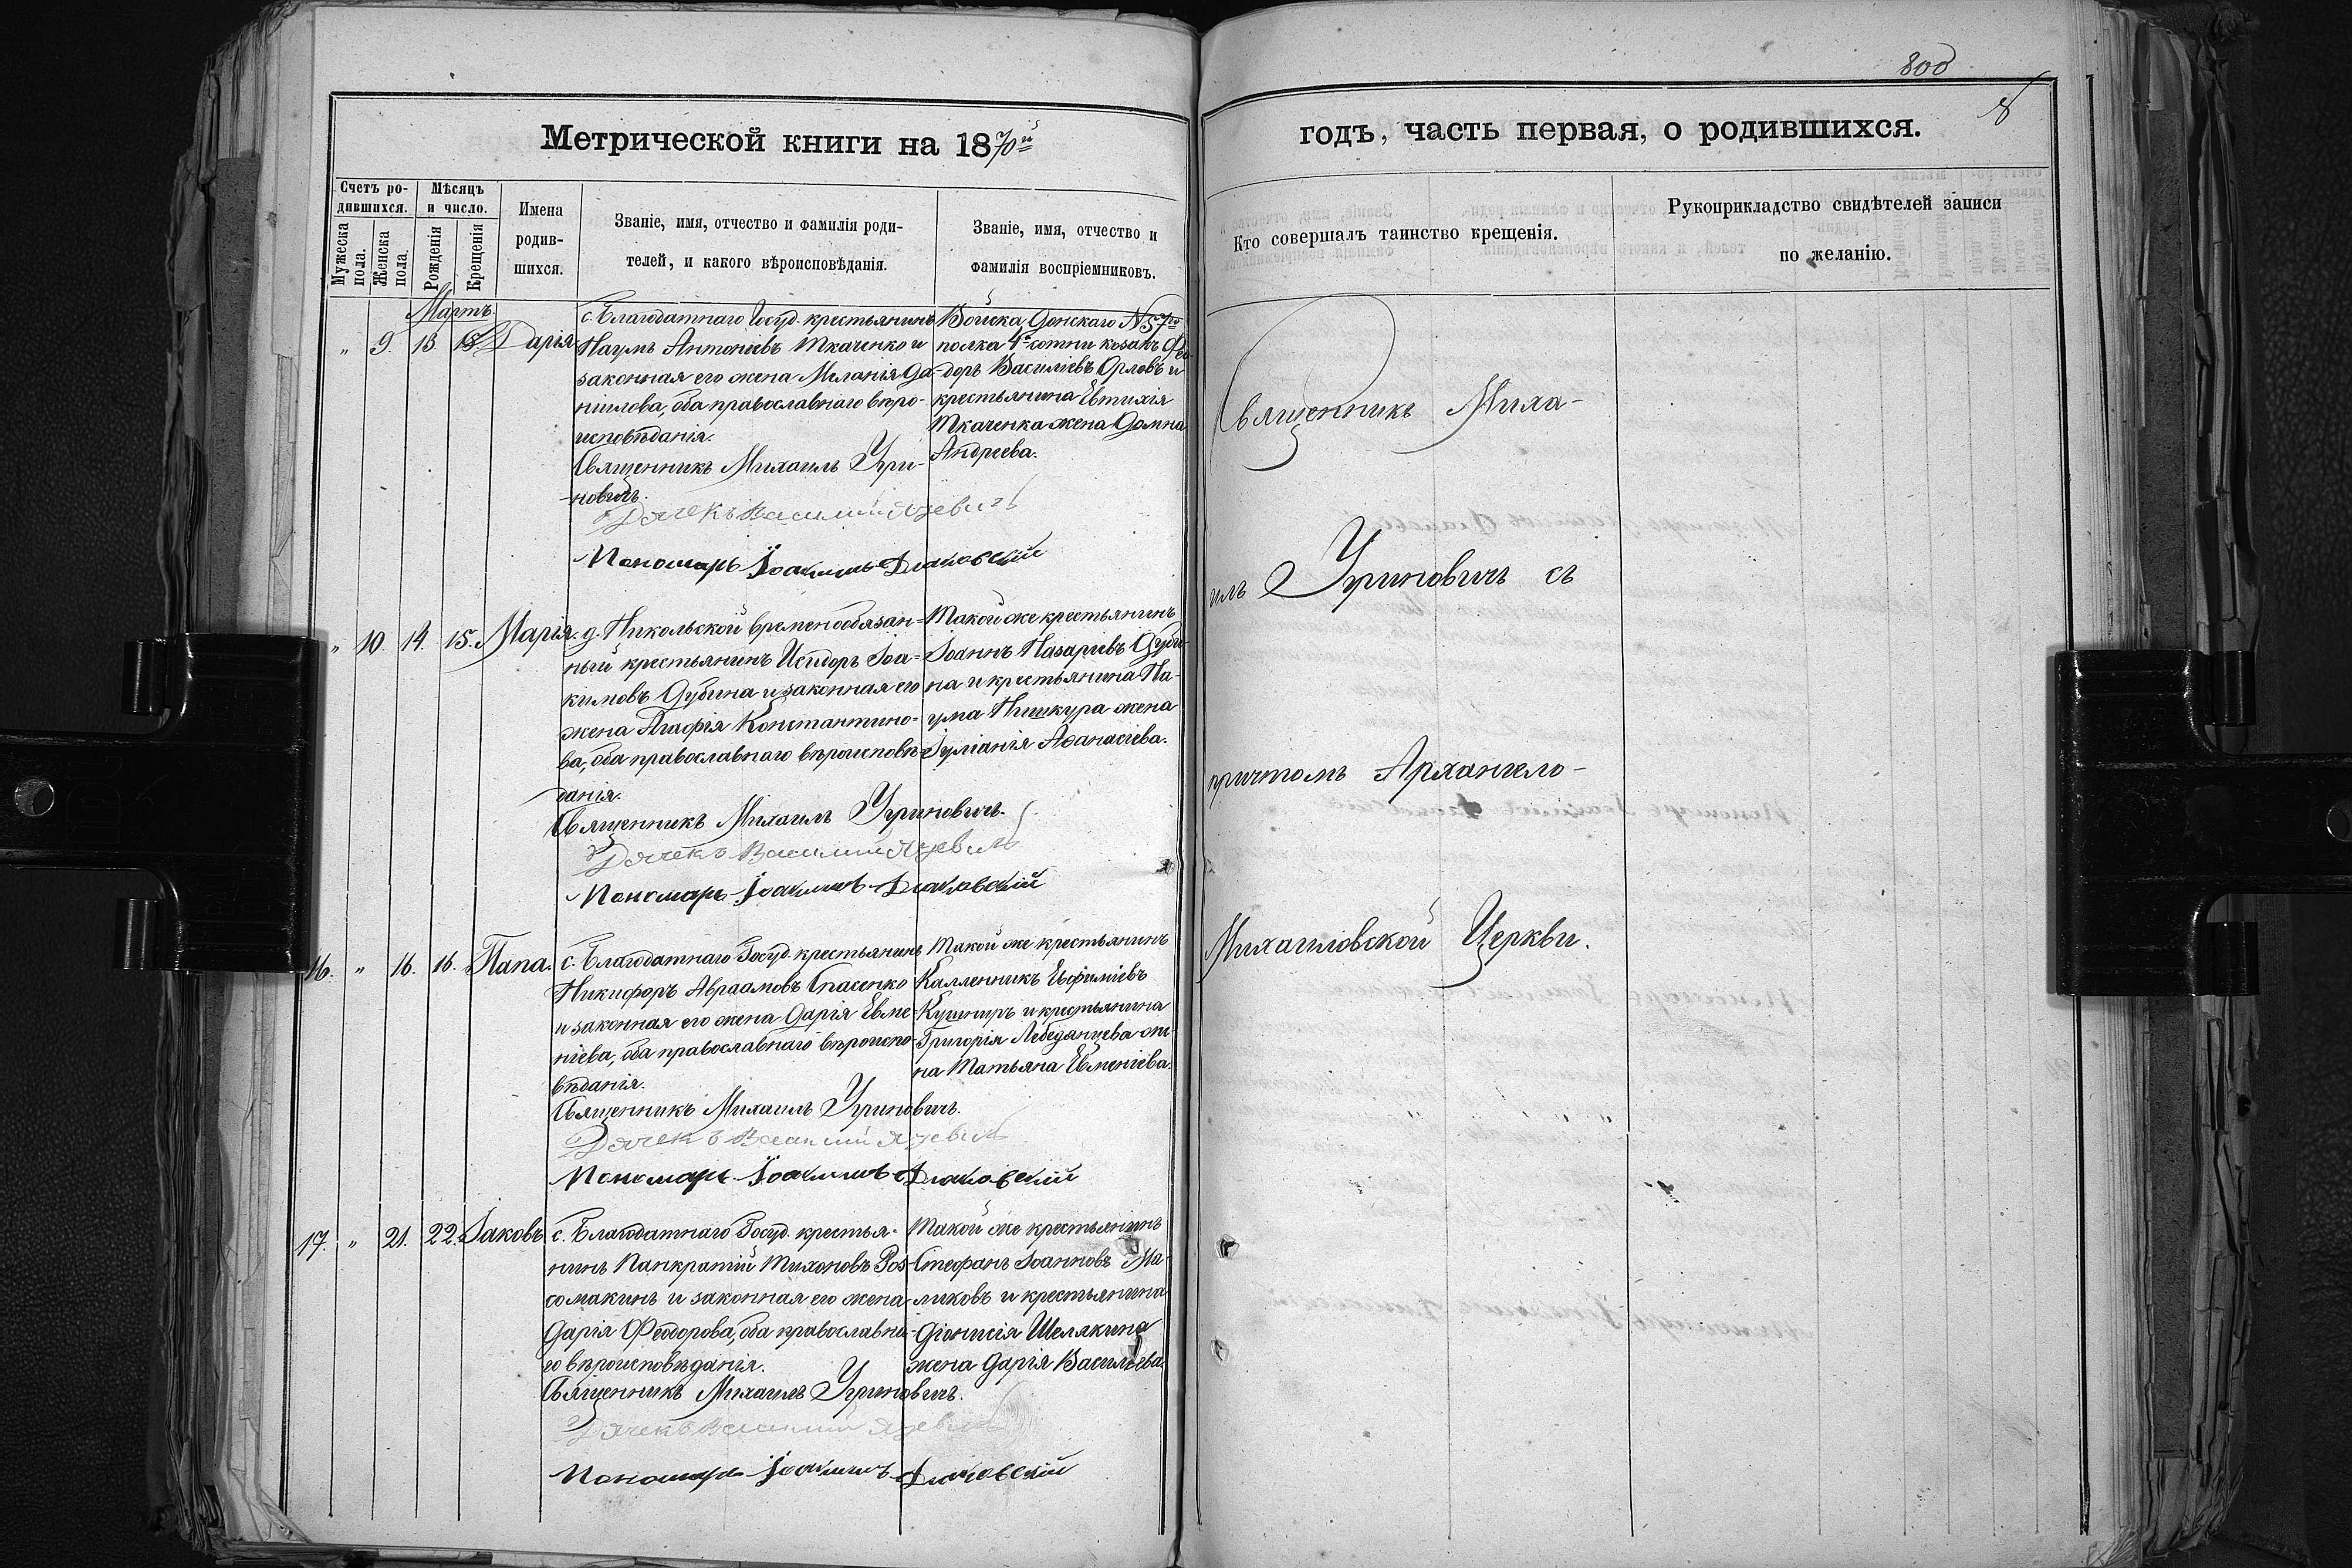 800
8
Метрической книги на 1870й
годъ, часть первая, о родившихся.
Счетъ родившихся.
Мужеска пола.
Женска пола.
Мѣсяцъ и число.
Рожденія
Крещенія
Имена родив-
шихся.
Званіе, имя, отчество и фамилія роди-
телей, и какого вѣроисповѣданія.
Званіе, имя, отчество и
фамилія воспріемниковъ.
Кто совершалъ таинство крещенія.
Рукоприкладство свидѣтелей записи
по желанію.
Мартъ.
„ 9. 13. 18 Дарія
с. Благодатнаго Госуд. крестьянинъ
Наумъ Антоніевъ Ткаченко и
законная его жена Меланія Да-
ніилова, оба православнаго вѣро-
исповѣданія.
Священникъ Михаилъ Угри-
новичъ.
Дячекъ Василий Язевичъ
Пономарь Іоакимъ Диаковскій
Войска Донскаго №57го
полка 4й сотни козакъ Фео-
доръ Василіевъ Орловъ и
крестьянина Евтихія
Ткаченка жена Домна
Андреева.
„ 10. 14. 15. Марія.
д. Никольской временнообязан-
ный крестьянинъ Исидоръ Іоа-
кимовъ Дубина и законная его
жена Агафія Константино-
ва, оба православнаго вѣроисповѣ-
данія.
Священникъ Михаилъ Угриновичъ.
Дячекъ Василий Язевичъ
Пономарь Іоакимъ Диаковскій
Такой же крестьянинъ
Іоаннъ Назаріевъ Дуби-
на и крестьянина На-
ума Пишкура жена
Іуліанія Аѳанасіева.
16. „ 16. 16. Папа.
с. Благодатнаго Госуд. крестьянинъ
Никифоръ Авраамовъ Спасенко
и законная его жена Дарія Евме-
ніева, оба православнаго вѣроиспо-
вѣданія.
Священникъ Михаилъ Угриновичъ.
Дячекъ Василий Язевичъ
Пономарь Іоакимъ Диаковскій
Такой же крестьянинъ
Каллиникъ Евфиміевъ
Кушниръ и крестьянина
Григорія Лебединцева же-
на Татьяна Евменіева.
17. „ 21. 22. Іаковъ
с. Благодатнаго Госуд. крестья-
нинъ Панкратій Тихоновъ Рос-
сомакинъ и законная его жена
Дарія Ѳеодорова, оба православна-
го вѣроисповѣданія.
Священникъ Михаилъ Угриновичъ.
Дячекъ Василий Язевичъ
Пономарь Іоакимъ Диаковскій
Такой же крестьянинъ
Стефанъ Іоанновъ Ма-
ликовъ и крестьянина
Діонисія Шелякина
жена Дарія Васильева.
Священникъ Миха-
илъ Угриновичъ съ
причтомъ Архангело-
Михаиловской Церкви.